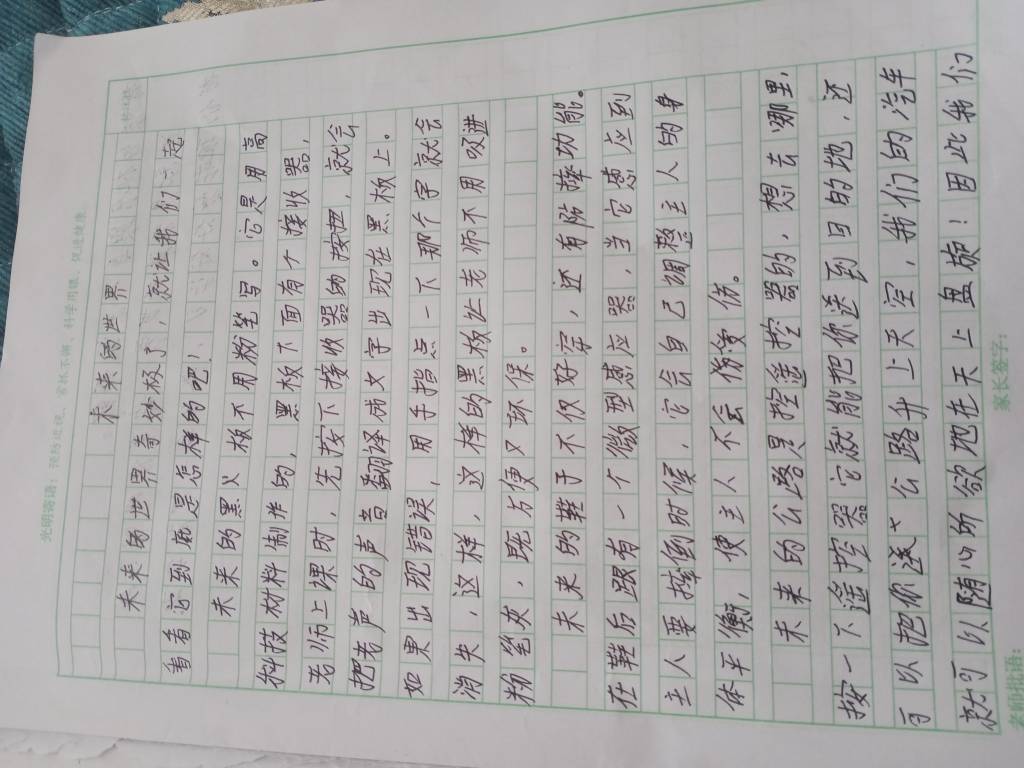 光明寄语：
未来的世界
未来的世界奇妙极了，就让我们一起
看看它到底是怎样的吧！
未来的黑板不用粉笔写。它是用高
科技材料制作的，黑板下面有个接收器，
老师上课时，先按下接收器的按扭，就会
把老声的声音翻译成文字出现在黑板上。
如果出现错误，用手指点一下那个字就会
消失，这样，这样的黑板让老师不用吸进
粉笔灰，既方便又环保。
未来的鞋子不仅好穿，还有防摔功能。
在鞋后跟有一个微型感应器，当它感应到
主人要摔倒时候，它会自己调整主人的身
体平衡，使主人不会倒受伤。
未来的公路是控遥控器的，想去哪里，
按一下遥控器它就能把你送到目的地，还
可以把你送 公路升上天空，我们的汽车
就可以随心所欲地在天上盘旋！因此我们
老师批语：
家长签字：